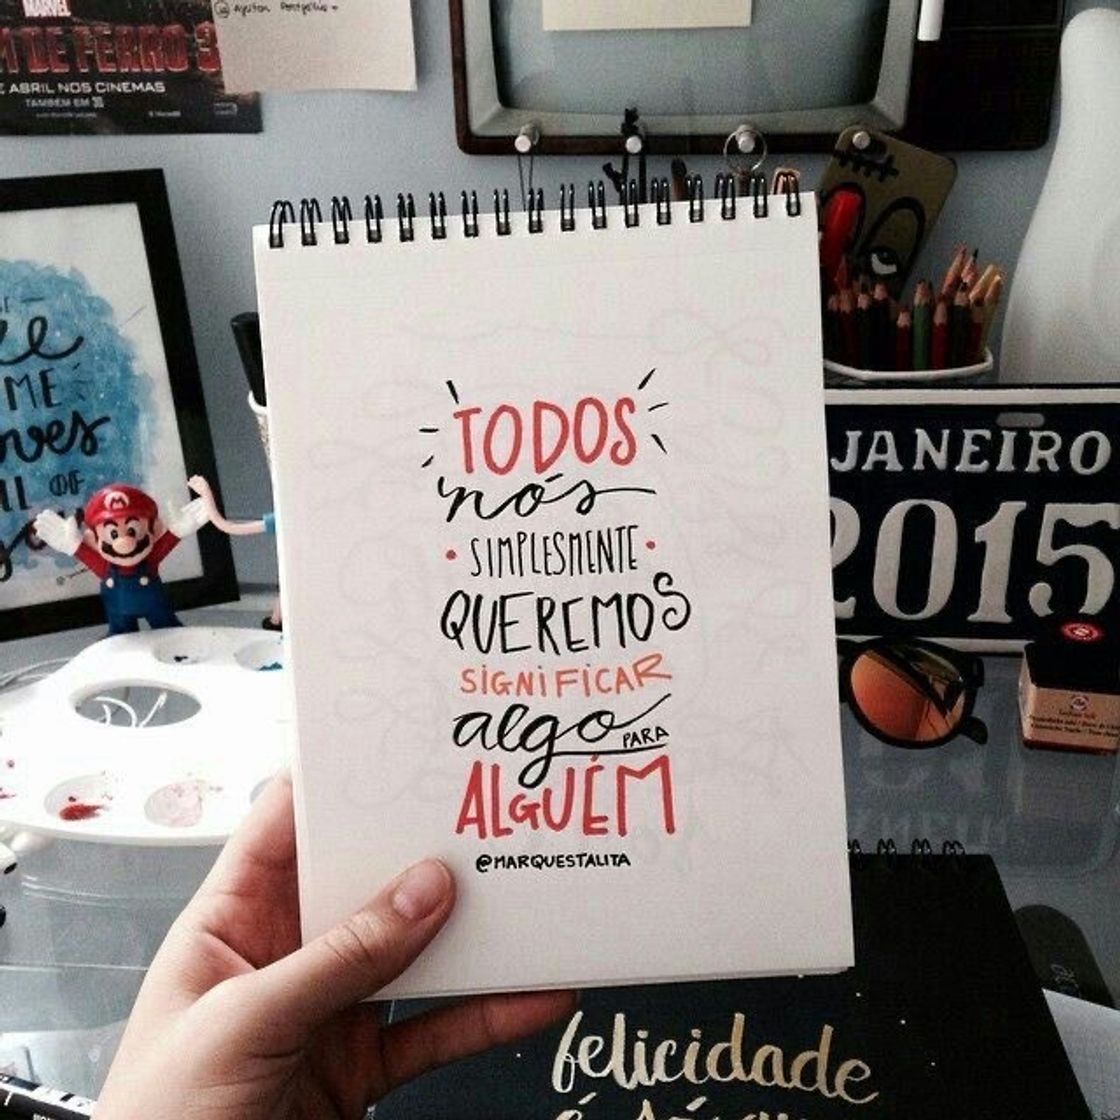 MARVEL
M DE FERRO 3
E ABRIL NOS CINEMAS
TAMBÉM EM 3D
ME
OF
TODOS
nós
• SIMPLESMENTE •
QUEREMOS
SIGNIFICAR
algo PARA
ALGUÉM
@MARQUESTALITA
JANEIRO
2015
felicidade
é